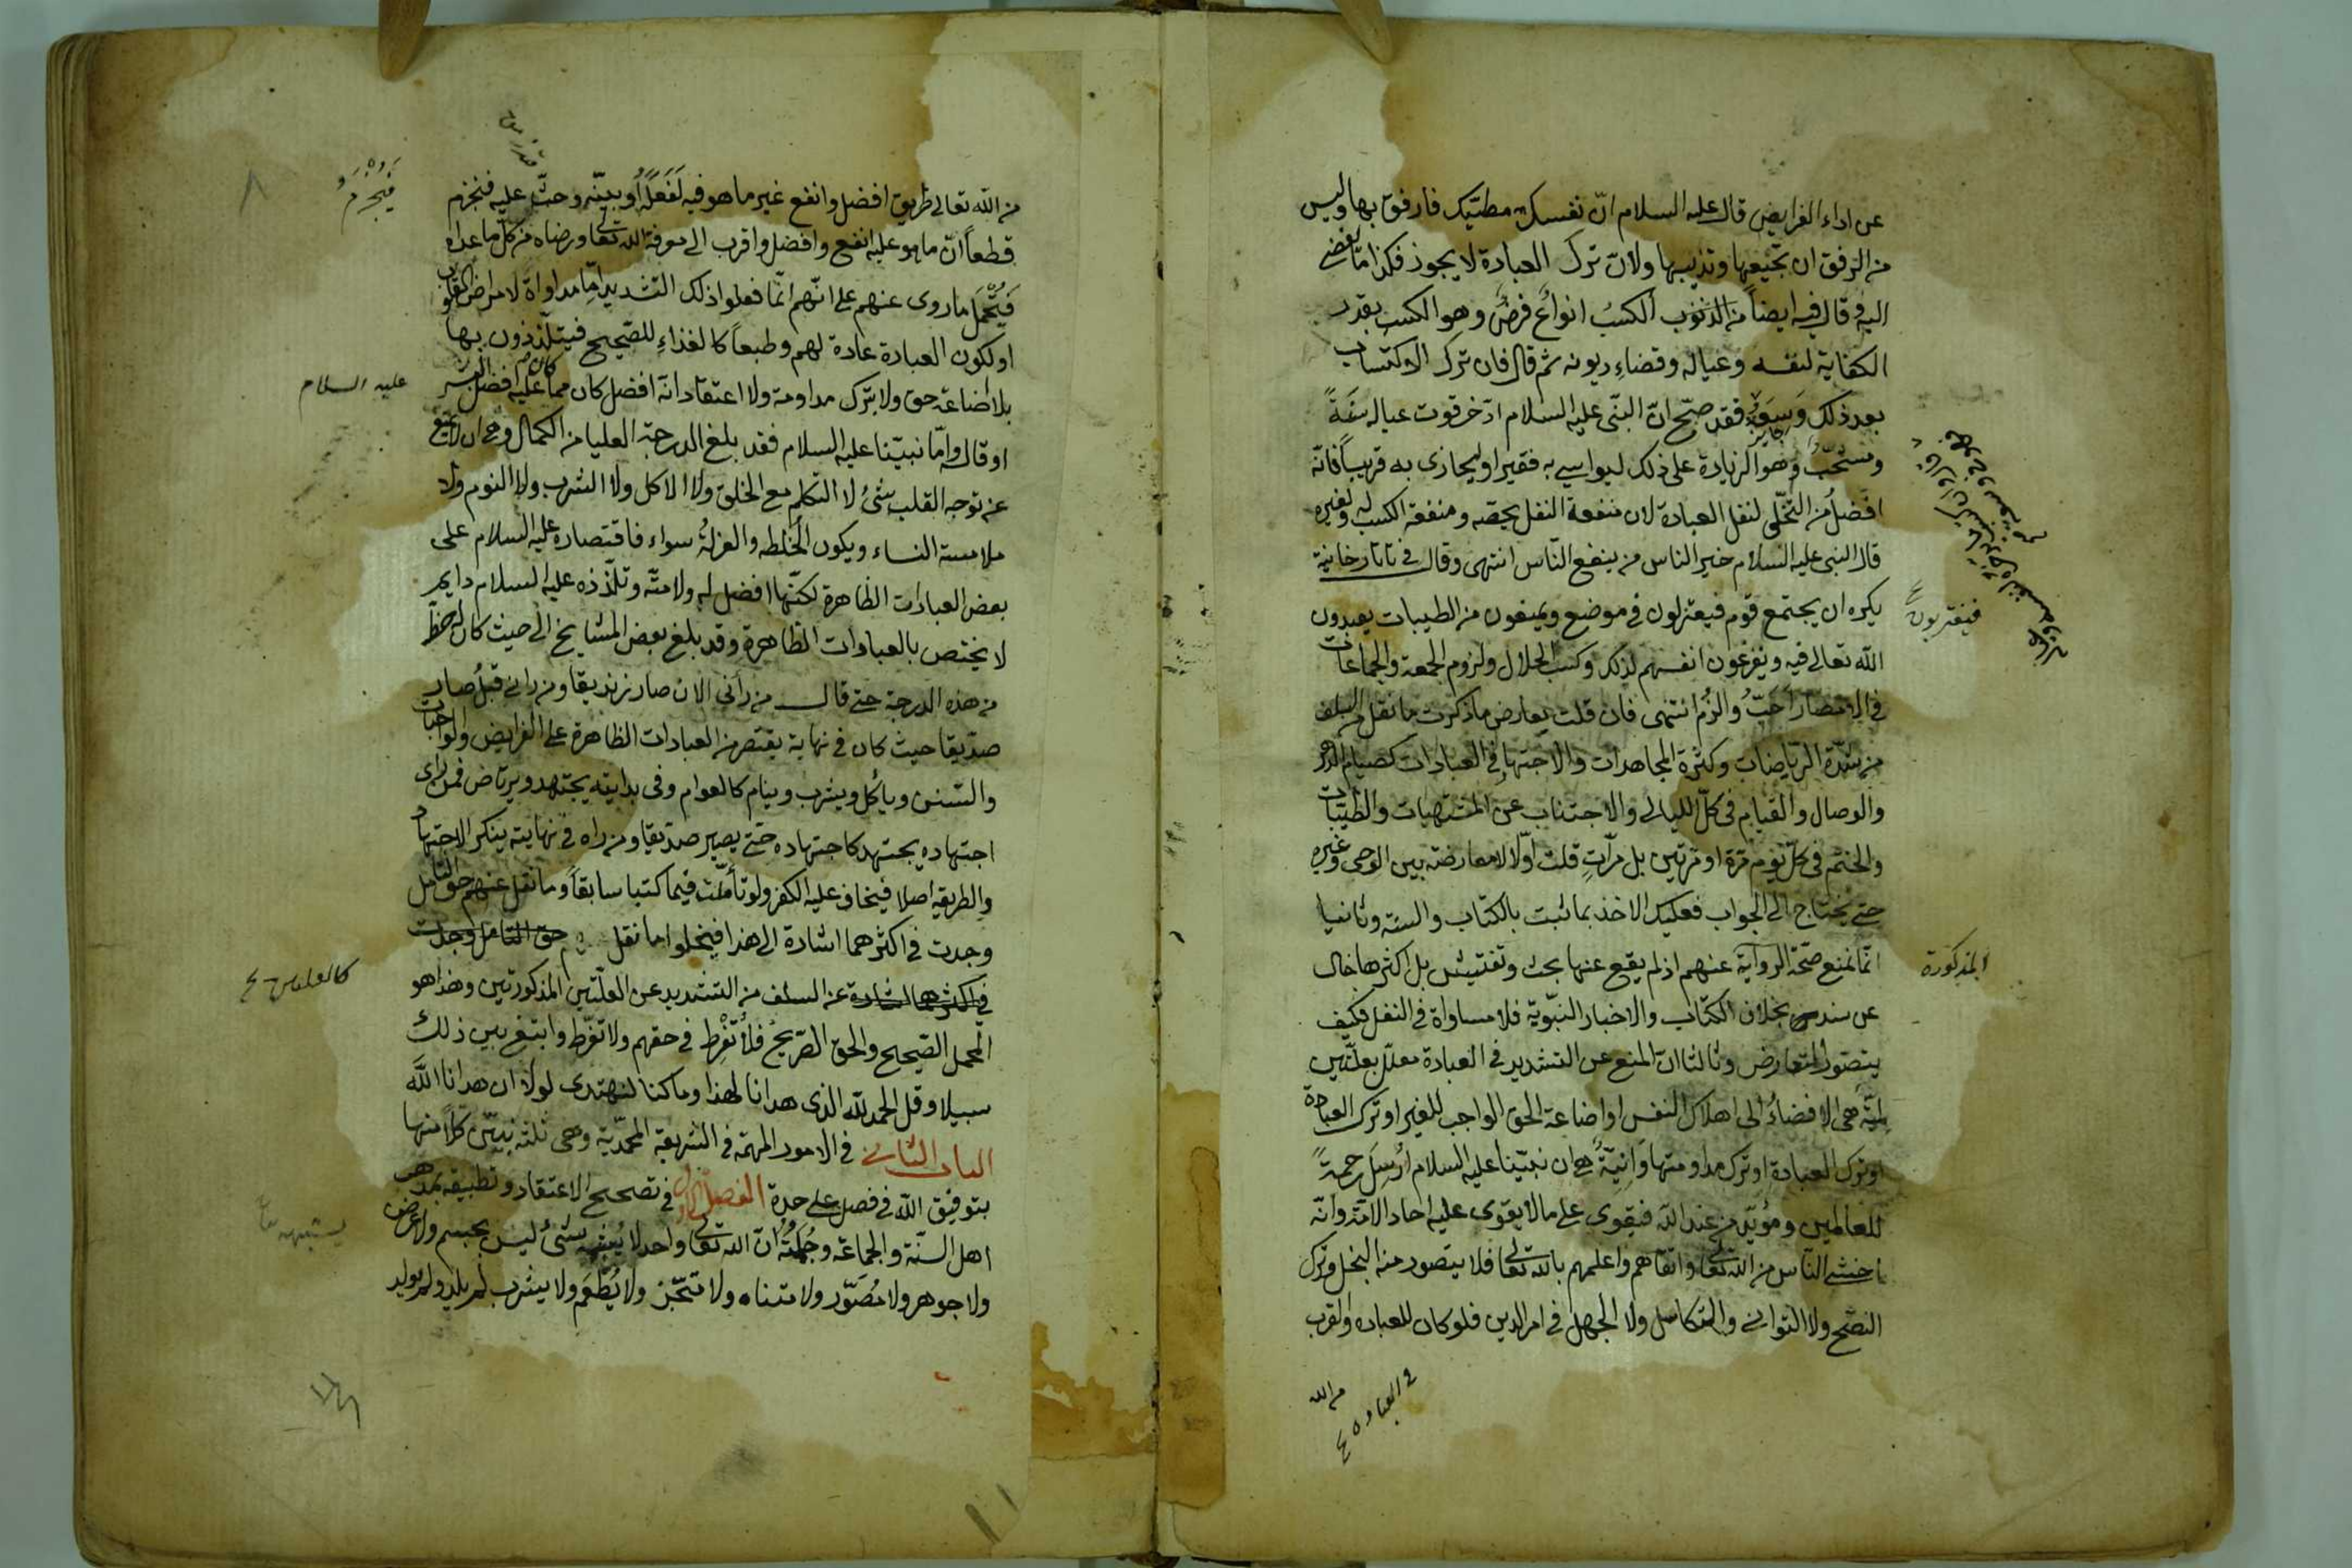 عن اداء الفرايض قال عليه السلام انّ نفسك مطيّتك فارفق بها وليس
من الرفق ان تجيّعها وتذيبها ولانّ ترك العبادة لا يجوز فكذا ما يفضى
اليه وقال فيه ايضاً من الذنوب الكسبُ انواعٌ فرضٌ وهو الكسب بقدر
الكفاية لنفسه وعياله وقضاءِ ديونه ثم قال فان ترك الاكتساب
بعد ذلك وَسِعَهُ فقد صحّ انّ النبى عليه السلام ادّخر قوت عياله سَنَةً
ومستحبٌّ وهو الزيادة على ذلك ليواسى به فقيرا او ليجازى به قريباً فانّه
افضلُ من التخلّى لنفل العبادة لان منفعة النفل يخصه ومنفعة الكسب له ولغيره
قال النبى عليه السلام خير الناس من ينفع النّاس انتهى وقال فى تاتارخانية
يكره ان يجتمع قوم فيعتزلون فى موضع ويمتنعون من الطيبات يعبدون
الله تعالى فيه ويفرغون انفسهم لذلك وكسب الحلال ولزوم الجمعة والجماعات
فى الامصار اَحَبُّ والزُم انتهى فان قلت يعارض ما ذكرت ما نقل من السلف
من شدّة الرياضات وكثرة المجاهدات والاجتهاد فى العبادات كصيام الدهر
والوصال والقيام فى كلّ الليالى والاجتناب عن المشتهيات والطيّبات
والختم فى كلّ يوم مرّة او مرّتين بل مرّاتٍ قلت اوّلا لا معارضة بين الوحى وغيره
حتى يُحتاج الى الجواب فعليك الاخذ بما ثبت بالكتاب والسنة وثانيا
انّا نمنع صحّة الرواية عنهم اذ لم يقع عنها بحث وتفتيش بل اكثرها خال
عن سند بخلاف الكتاب والاخبار النبّويّة فلا مساواة فى النقل فكيف
يتصوّر التعارض وثالثا انّ المنع عن التشديد فى العبادة معلّل بعلّتين
لِمِّيَّةٍ هى الافضاءُ الى اهلاك النفس او اضاعة الحق الواجب للغير او ترك العبادة
او ترك العبادة او ترك مداومتها وَاِنِّيَّةٌ هى ان نبيّنا عليه السلام اُرسِلَ رحمةً
للعالمين ومؤيّد من عند الله فيقوى على ما لا يقوى عليه احاد الامّة وانّه
اخشى النّاس من الله تعالى واتقاهم واعلمهم بالله تعالى فلا يتصور منه البخل وترك
النصح ولا التوانى والتكاسل ولا الجهل فى امر الدين فلو كان للعباده والقرب
فيقتربون
المذكورة
فى العباده
من الله
من الله تعالى طريق افضل وانفع غير ما هو فيه لَفَعَلَهُ اَو بيّنه وحثّ عليه فنجزم
قطعاً انّ ما هو عليه انفع وافضل واقرب الى معرفة الله تعالى ورضاه من كلّ ما عداه
فَيُحْمَل ما روى عنهم على انّهم انّما فعلوا ذلك التشديد امّا مداواة لامراض القلوب
او لكون العبادة عادة لهم وطبعاً كالغذاءِ للصّحيح فيتلذّذون بها
بلا اضاعة حق ولا بترك مداومة ولا اعتقاد انه افضل كان مما عليه افضل البشر
او قال وامّا نبيّنا عليه السلام فقد بلغ الدرجة العليا من الكمال وهى ان لا يمنع
عن توجه القلب شئُ لا التكلم مع الخلق ولا الاكل ولا الشرب ولا النوم ولا
ملامسة النساء ويكون الخُلطه والعزلةُ سواء فاقتصاره عليه السلام على
بعض العبادات الظاهرة لكنّها افضل له ولامته وتلذّذه عليه السلام دايم
لا يختص بالعبادات الظاهرةِ وقد بلغ بعض المشايخ الى حيث كان له حظّ
من هذه الدرجة حتى قال من رأنى الان صار زنديقا ومن رانى قبلُ صار
صدّيقا حيث كان فى نهاية يقتصر من العبادات الظاهرة على الفرايض والواجبات
والسّنن ويأكل ويشرب وينام كالعوام وفى بدايته يجتهد ويرتاض فمن راى
اجتهاده يجتهد كاجتهاده حتّى يصير صدّيقا ومن راه فى نهايته ينكر الاجتهاد
والطريقة اصلا فيُخاف عليه الكفر ولو تأمّلت فيما كتبنا سابقاً وما نقل عنهم حق التأمّل
وجدت فى اكثرهما اشارة الى هذا فيحلّوا ما نقل حق التامل وجدت
فى اكثرهما اشارة عن السلف من التشديد عن العلّتين المذكورتين وهذا هو
المحمل الصّحيح والحق الصّريحُ فلا تُفْرِط فى حقهم ولا تفرّط وابتغ بين ذلك
سبيلا وقل الحمد لله الذى هدانا لهذا وما كنا لنهتدى لولا ان هدانا اللّه
الباب الثانى فى الامور المهمّة فى الشريعة المحمّديّة وهى ثلثة نبيّن كلاً منها
بتوفيق الله فى فصل على حدة الفصل الاول فى تصحيح الاعتقاد وتطبيقه بمذهب
اهل السنّة والجماعة وجُمْلَتُهُ انّ الله تعالى واحد لا يُشبهه شئٌ ليس بجسم ولا عرض
ولا جوهر ولا مُصَوّر ولا متناه ولا متحيّز ولا يُطْعَم ولا يشرب لم يلد ولم يولد
فَيُجْزَمُ
عليه السلام
٨
١١